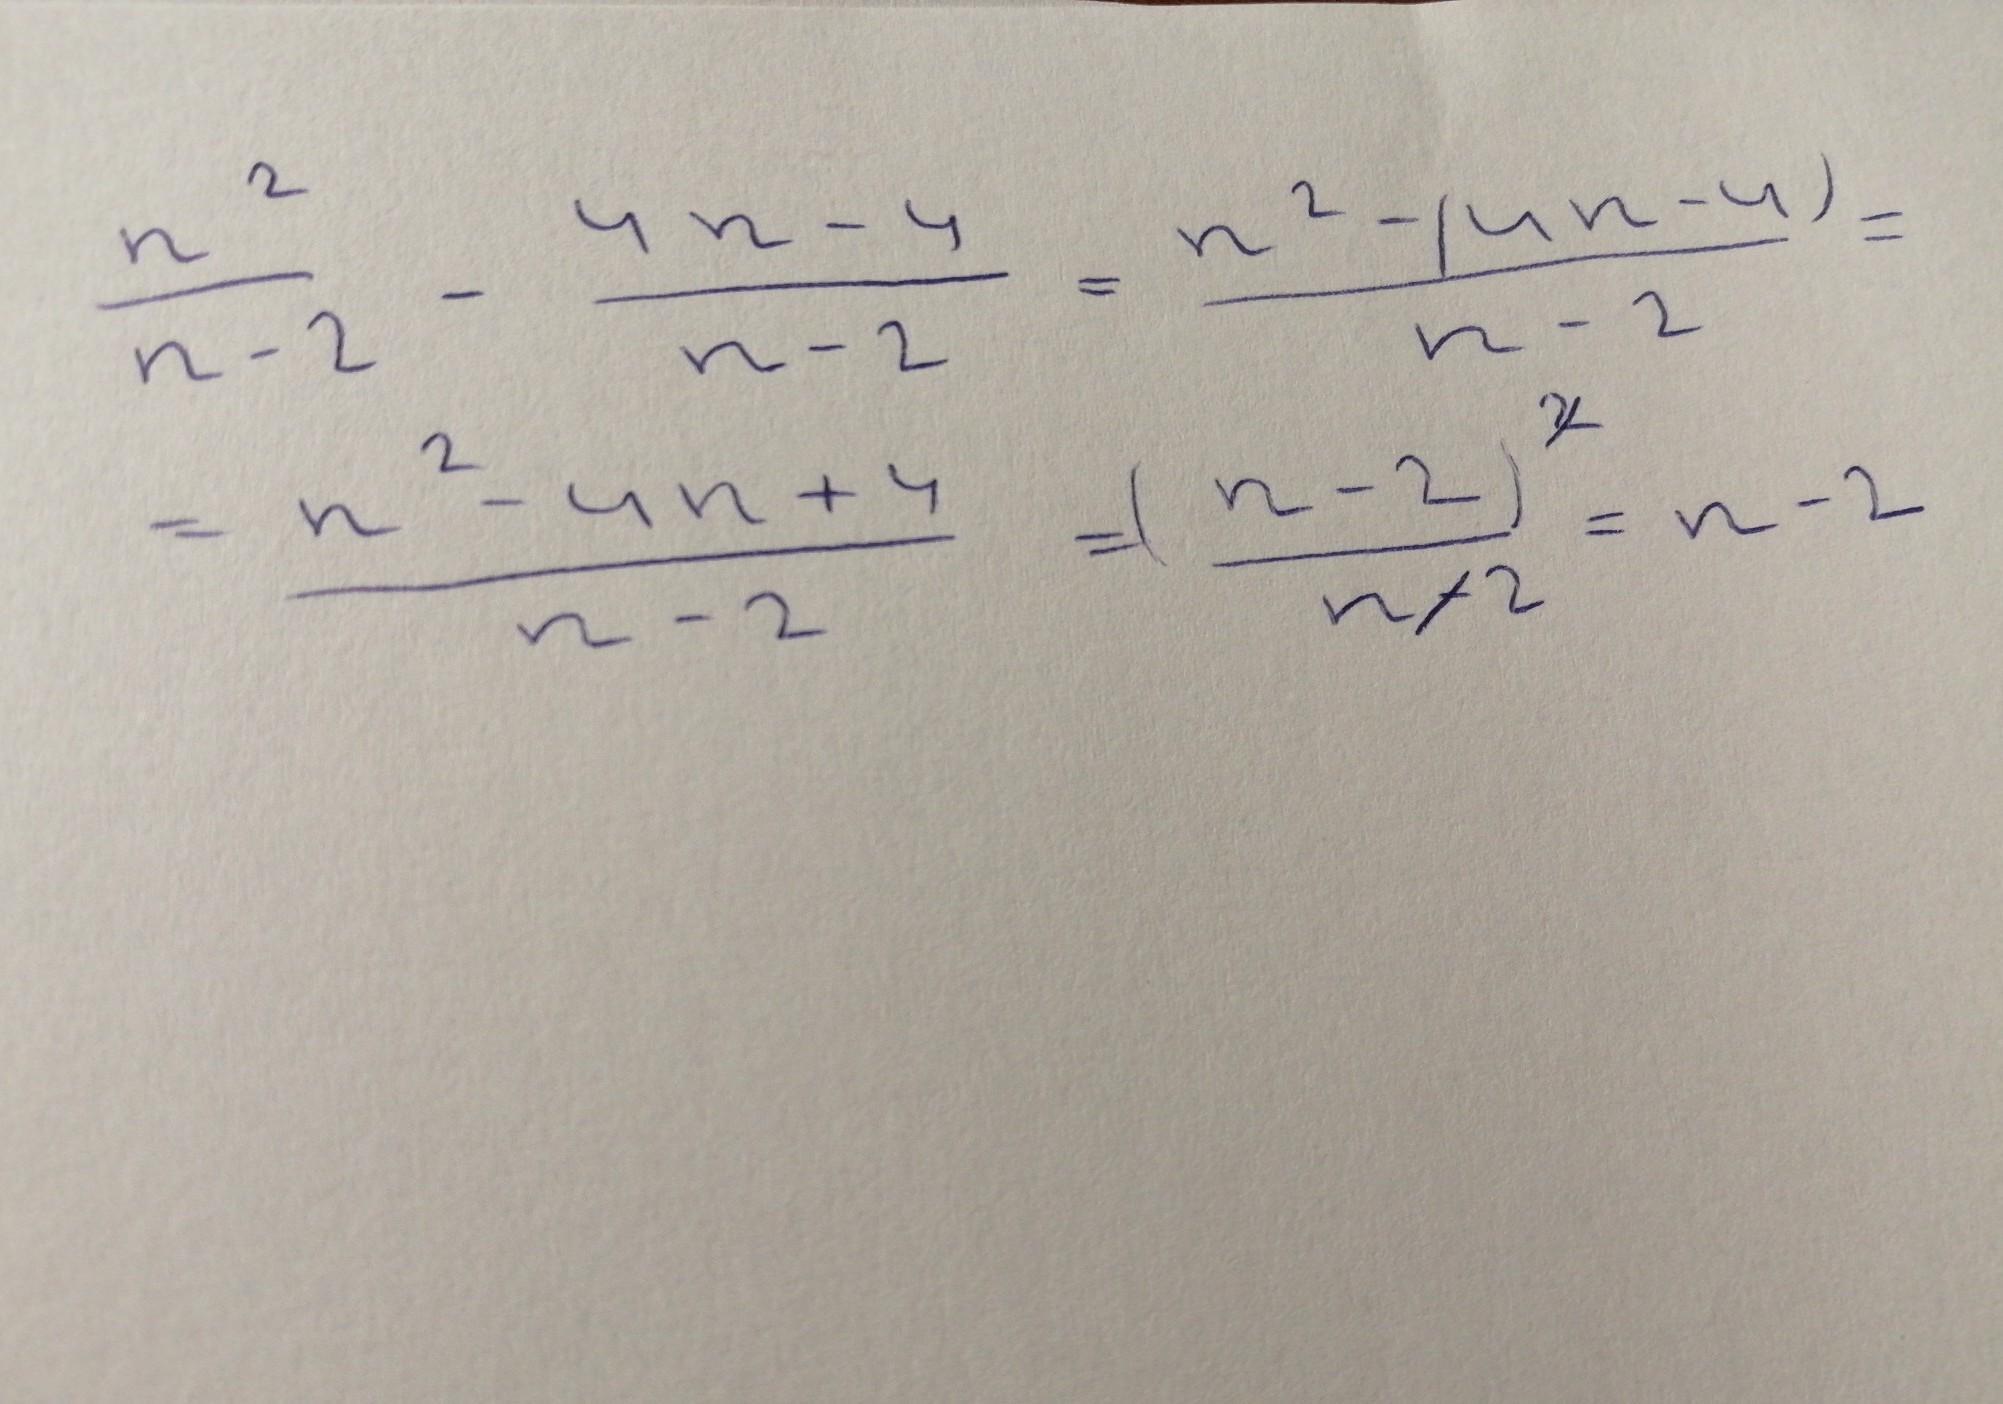 n²/(n-2) - (4n-4)/(n-2) = (n²-(4n-4))/(n-2) =
= (n²-4n+4)/(n-2) = (n-2)²/(n-2) = n-2